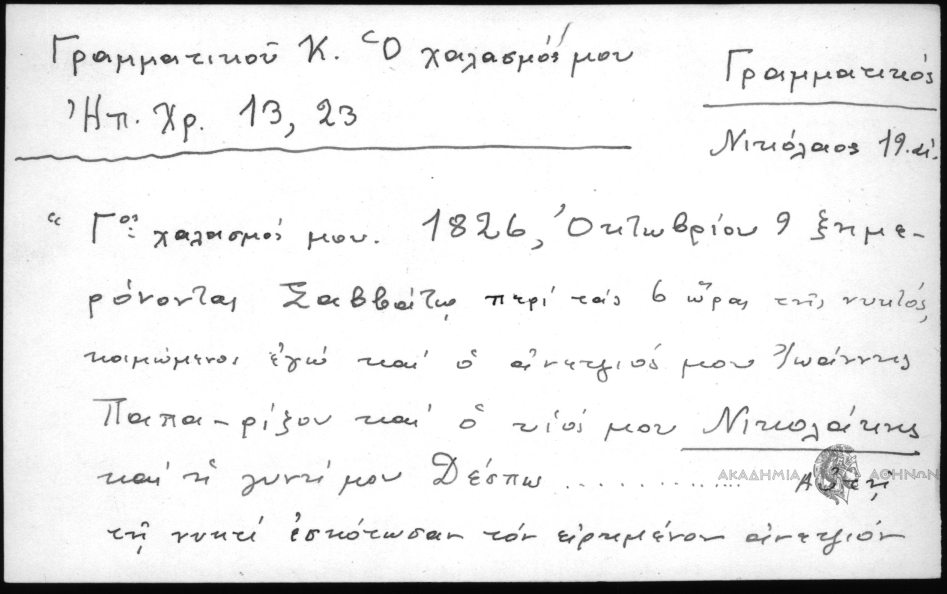 Γραμματικού Κ. Ὁ χαλασμός μου
Ἠπ. Χρ. 13, 23
Γραμματικός
Νικόλαος 19. αἰ.
“ Γος χαλασμός μου. 1826, Ὀκτωβρίου 9 ξημε-
ρόνοντας Σαββάτῳ περί τάς 6 ὥρας τῆς νυκτός,
κοιμώμενοι ἐγώ καί ὁ ἀνεψιός μου Ἰωάννης
Παπα-ρίζου καί ὁ υἱός μου Νικολάκης
καί ἡ γυνή μου Δέσπω ............. Αὐτῇ
ΑΚΑΔΗΜΙΑ ΑΘΗΝΩΝ
τῇ νυκτί ἐσκότωσαν τόν εἰρημένον ἀνεψιόν